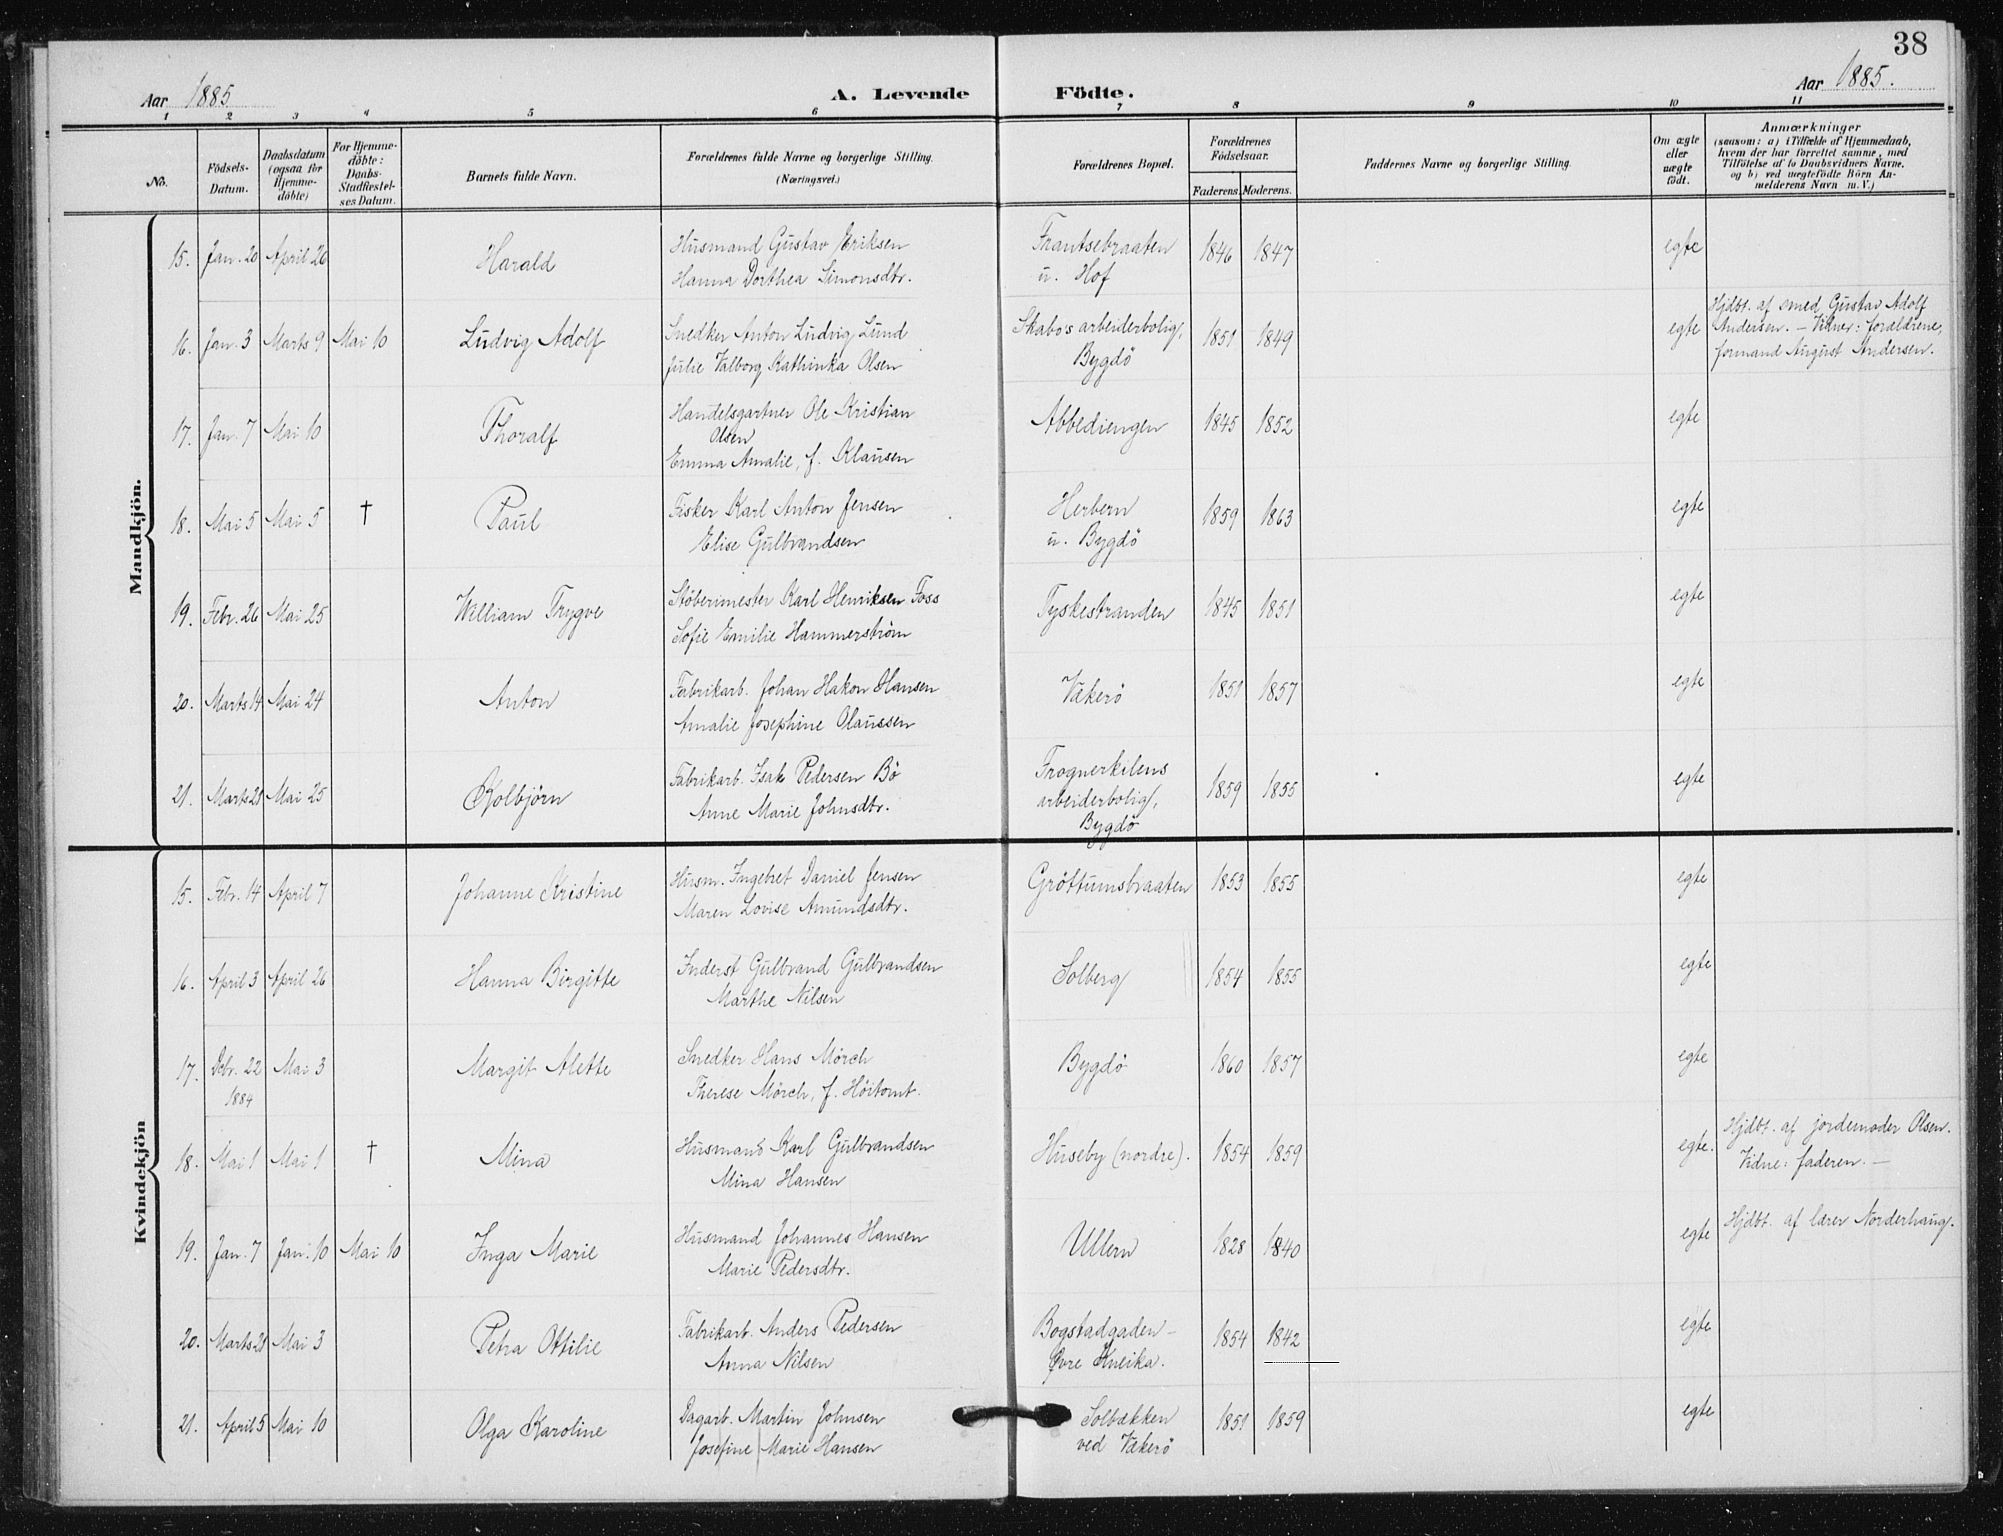 38
Aar 1885
A. Levende Födte.
Aar 1885.
1 2 3 4 5 6 7 8 9 10 11
No.
Födsels-Datum.
Daabsdatum (ogsaa for Hjemmedöbte)
For Hjemmedöbte: Daabs-Stadfæstelses Datum.
Barnets fulde Navn.
Forældrenes fulde Navne og borgerlige Stilling.
(Næringsvei.)
Forældrenes Bopæl.
Forældrenes Födselsaar.
Faderens. Moderens.
Faddernes Navne og borgerlige Stilling.
Om ægte eller uægte födt.
Anmærkninger
(saasom: a) i Tilfælde af Hjemmedaab, hvem der har forrettet samme, med Tilföielse af to Daabsvidners Navne, og b) ved uægtefödte Börn Anmelderens Navn m. V.)
Mandkjön.
15. Jan. 20 April 26 Harald Husmand Gustav Eriksen Frantsebraaten 1846 1847 egte
Hanna Dorthea Simonsdtr. u. Hof
16. Jan. 3 Marts 9 Mai 10 Ludvig Adolf Snedker Anton Ludvig Lund Skabo's arbeiderbolig, 1851 1849 egte Hjdbt. af smed Gustav Adolf
Julie Valborg Kathinka Olsen Bygdö Andersen. – Vidner: forældrene,
formand August Andersen.
17. Jan. 7 Mai 10 Thoralf Handelsgartner Ole Kristian Abbediengen 1845 1852 egte
Olsen
Emma Amalie, f. Klausen
18. Mai 5 Mai 5 † Paul Fisker Karl Anton Jensen Herbern 1859 1863 egte
Elise Gulbrandsen u. Bygdö
19. Febr. 26 Mai 25 William Trygve Stöberimester Karl Henriksen Foss Tyskestranden 1845 1851 egte
Sofie Emilie Hammerström
20. Marts 14 Mai 24 Anton Fabrikarb. Johan Hakon Hansen Vækerö 1851 1857 egte
Amalie Josephine Olaussen
21. Marts 21 Mai 25 Kolbjörn Fabrikarb. Isak Pedersen Bö Frognerkilens 1859 1855 egte
Anne Marie Johnsdtr. arbeiderbolig,
Bygdö
Kvindekjön
15. Febr. 14 April 7 Johanne Kristine Husm. Ingebret Daniel Jensen Gröttumsbraaten 1853 1855 egte
Maren Lovise Amundsdtr.
16. April 3 April 26 Hanna Birgitte Inderst Gulbrand Gulbrandsen Solberg 1854 1855 egte
Marthe Nilsen
17. Dcbr. 22 Mai 3 Margit Alette Snedker Hans Mörch Bygdö 1860 1857 egte
1884 Therese Mörch, f. Höitomt.
18. Mai 1 Mai 1 † Mina Husmand Karl Gulbrandsen Huseby (nordre). 1854 1859 egte. Hjdbt. af jordemoder Olsen.
Mina Hansen Vidne: faderen. –
19. Jan. 7 Jan. 10 Mai 10 Inga Marie Husmand Johannes Hansen Ullern 1828 1840 egte Hjdbt. af lærer Norderhaug.
Marie Pedersdtr.
20. Marts 21 Mai 3 Petra Ottilie Fabrikarb. Anders Pedersen Bogstadgaden – 1854 1842 egte
Anna Nilsen Øvre Kneika.
21. April 5 Mai 10 Olga Karoline Dagarb. Martin Johnsen Solbækken 1851 1859 egte
Josefine Marie Hansen ved Vækerö